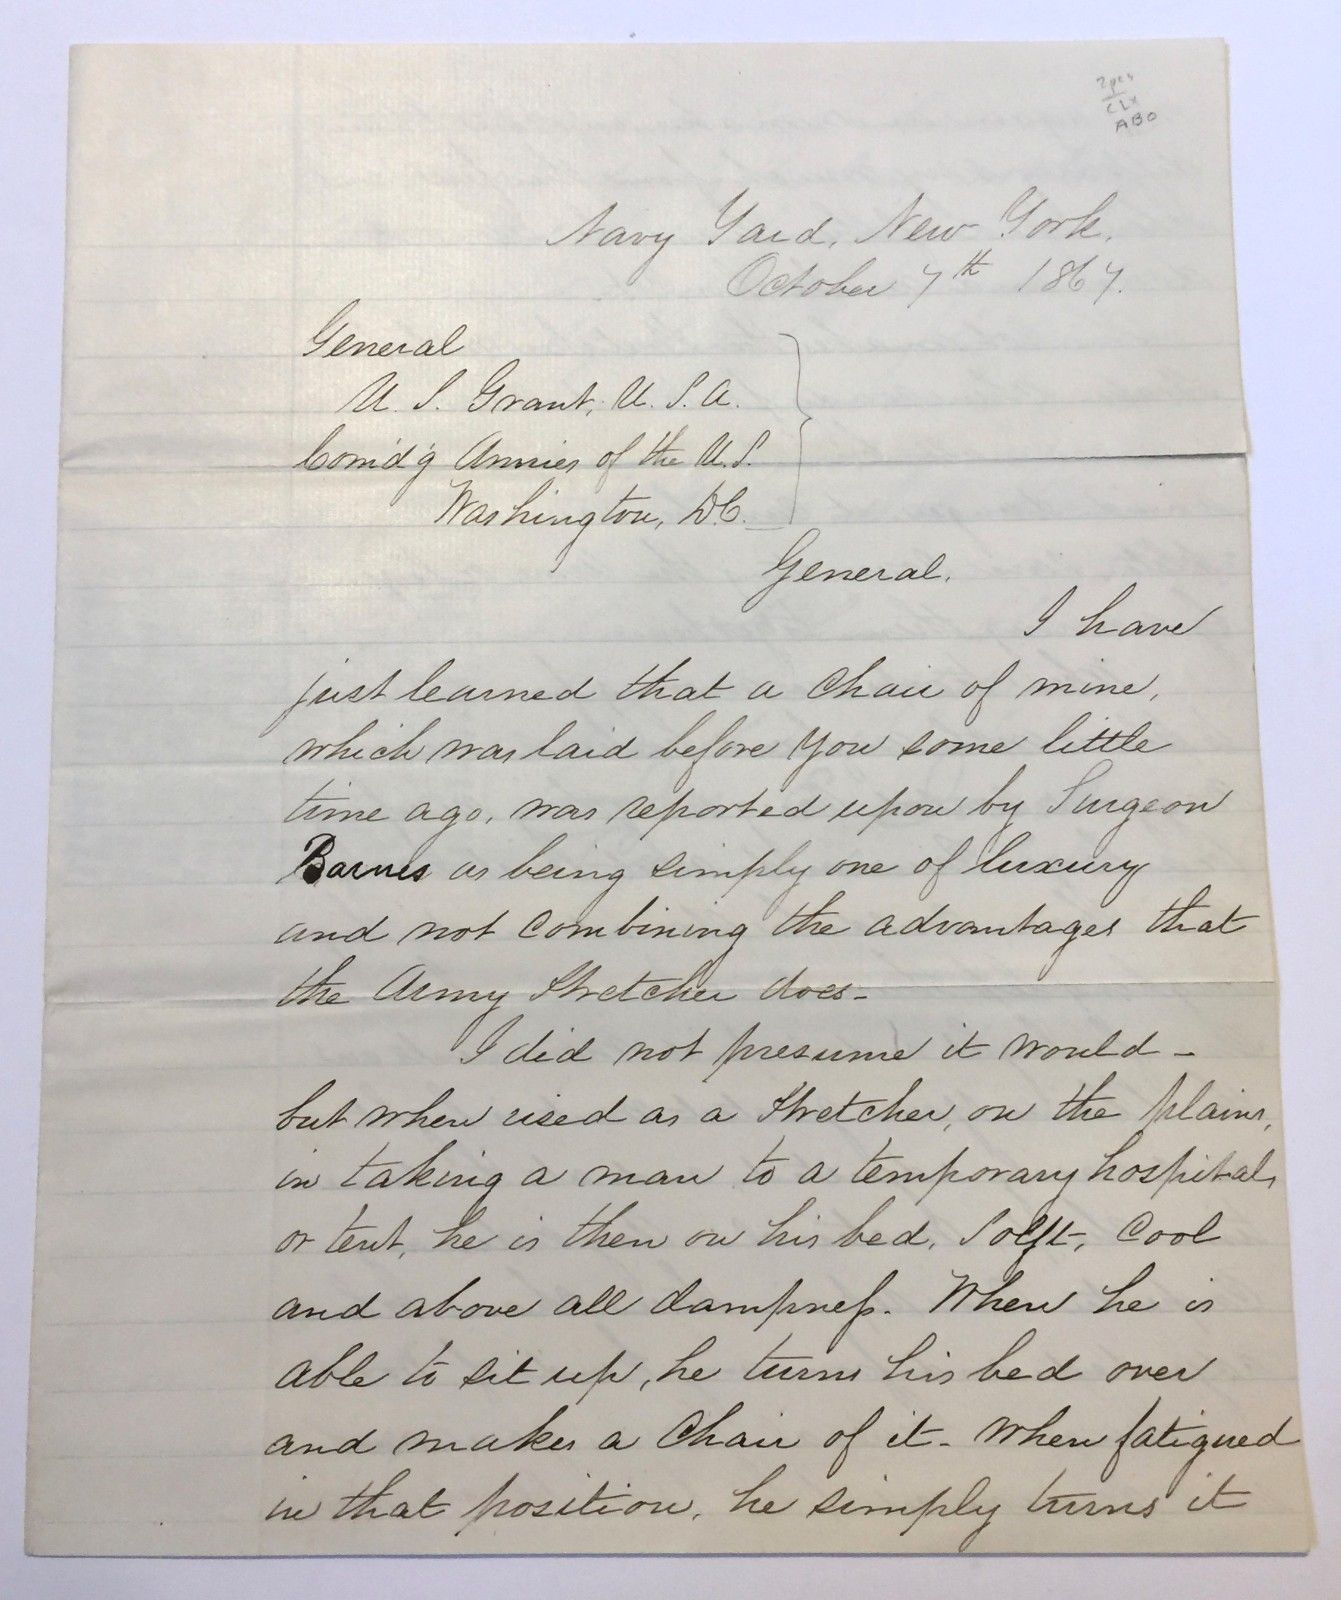 Navy Yard, New York.
October 7th 1867.
General
U. S. Grant, U. S. A.
Com'd'g Armies of the U.S.
Washington, D.C.
General.
I have
just learned that a Chair of mine,
which was laid before you some little
time ago, was reported upon by Surgeon
Barnes as being simply one of luxury
and not combining the advantages that
the Army Stretcher does-
I did not presume it would-
but when used as a Stretcher, on the plains,
in taking a man to a temporary hospital,
or tent, he is then on his bed, Soft, Cool
and above all dampness. When he is
able to sit up, he turns his bed over
and makes a Chair of it- When fatigued
in that position, he simply turns it